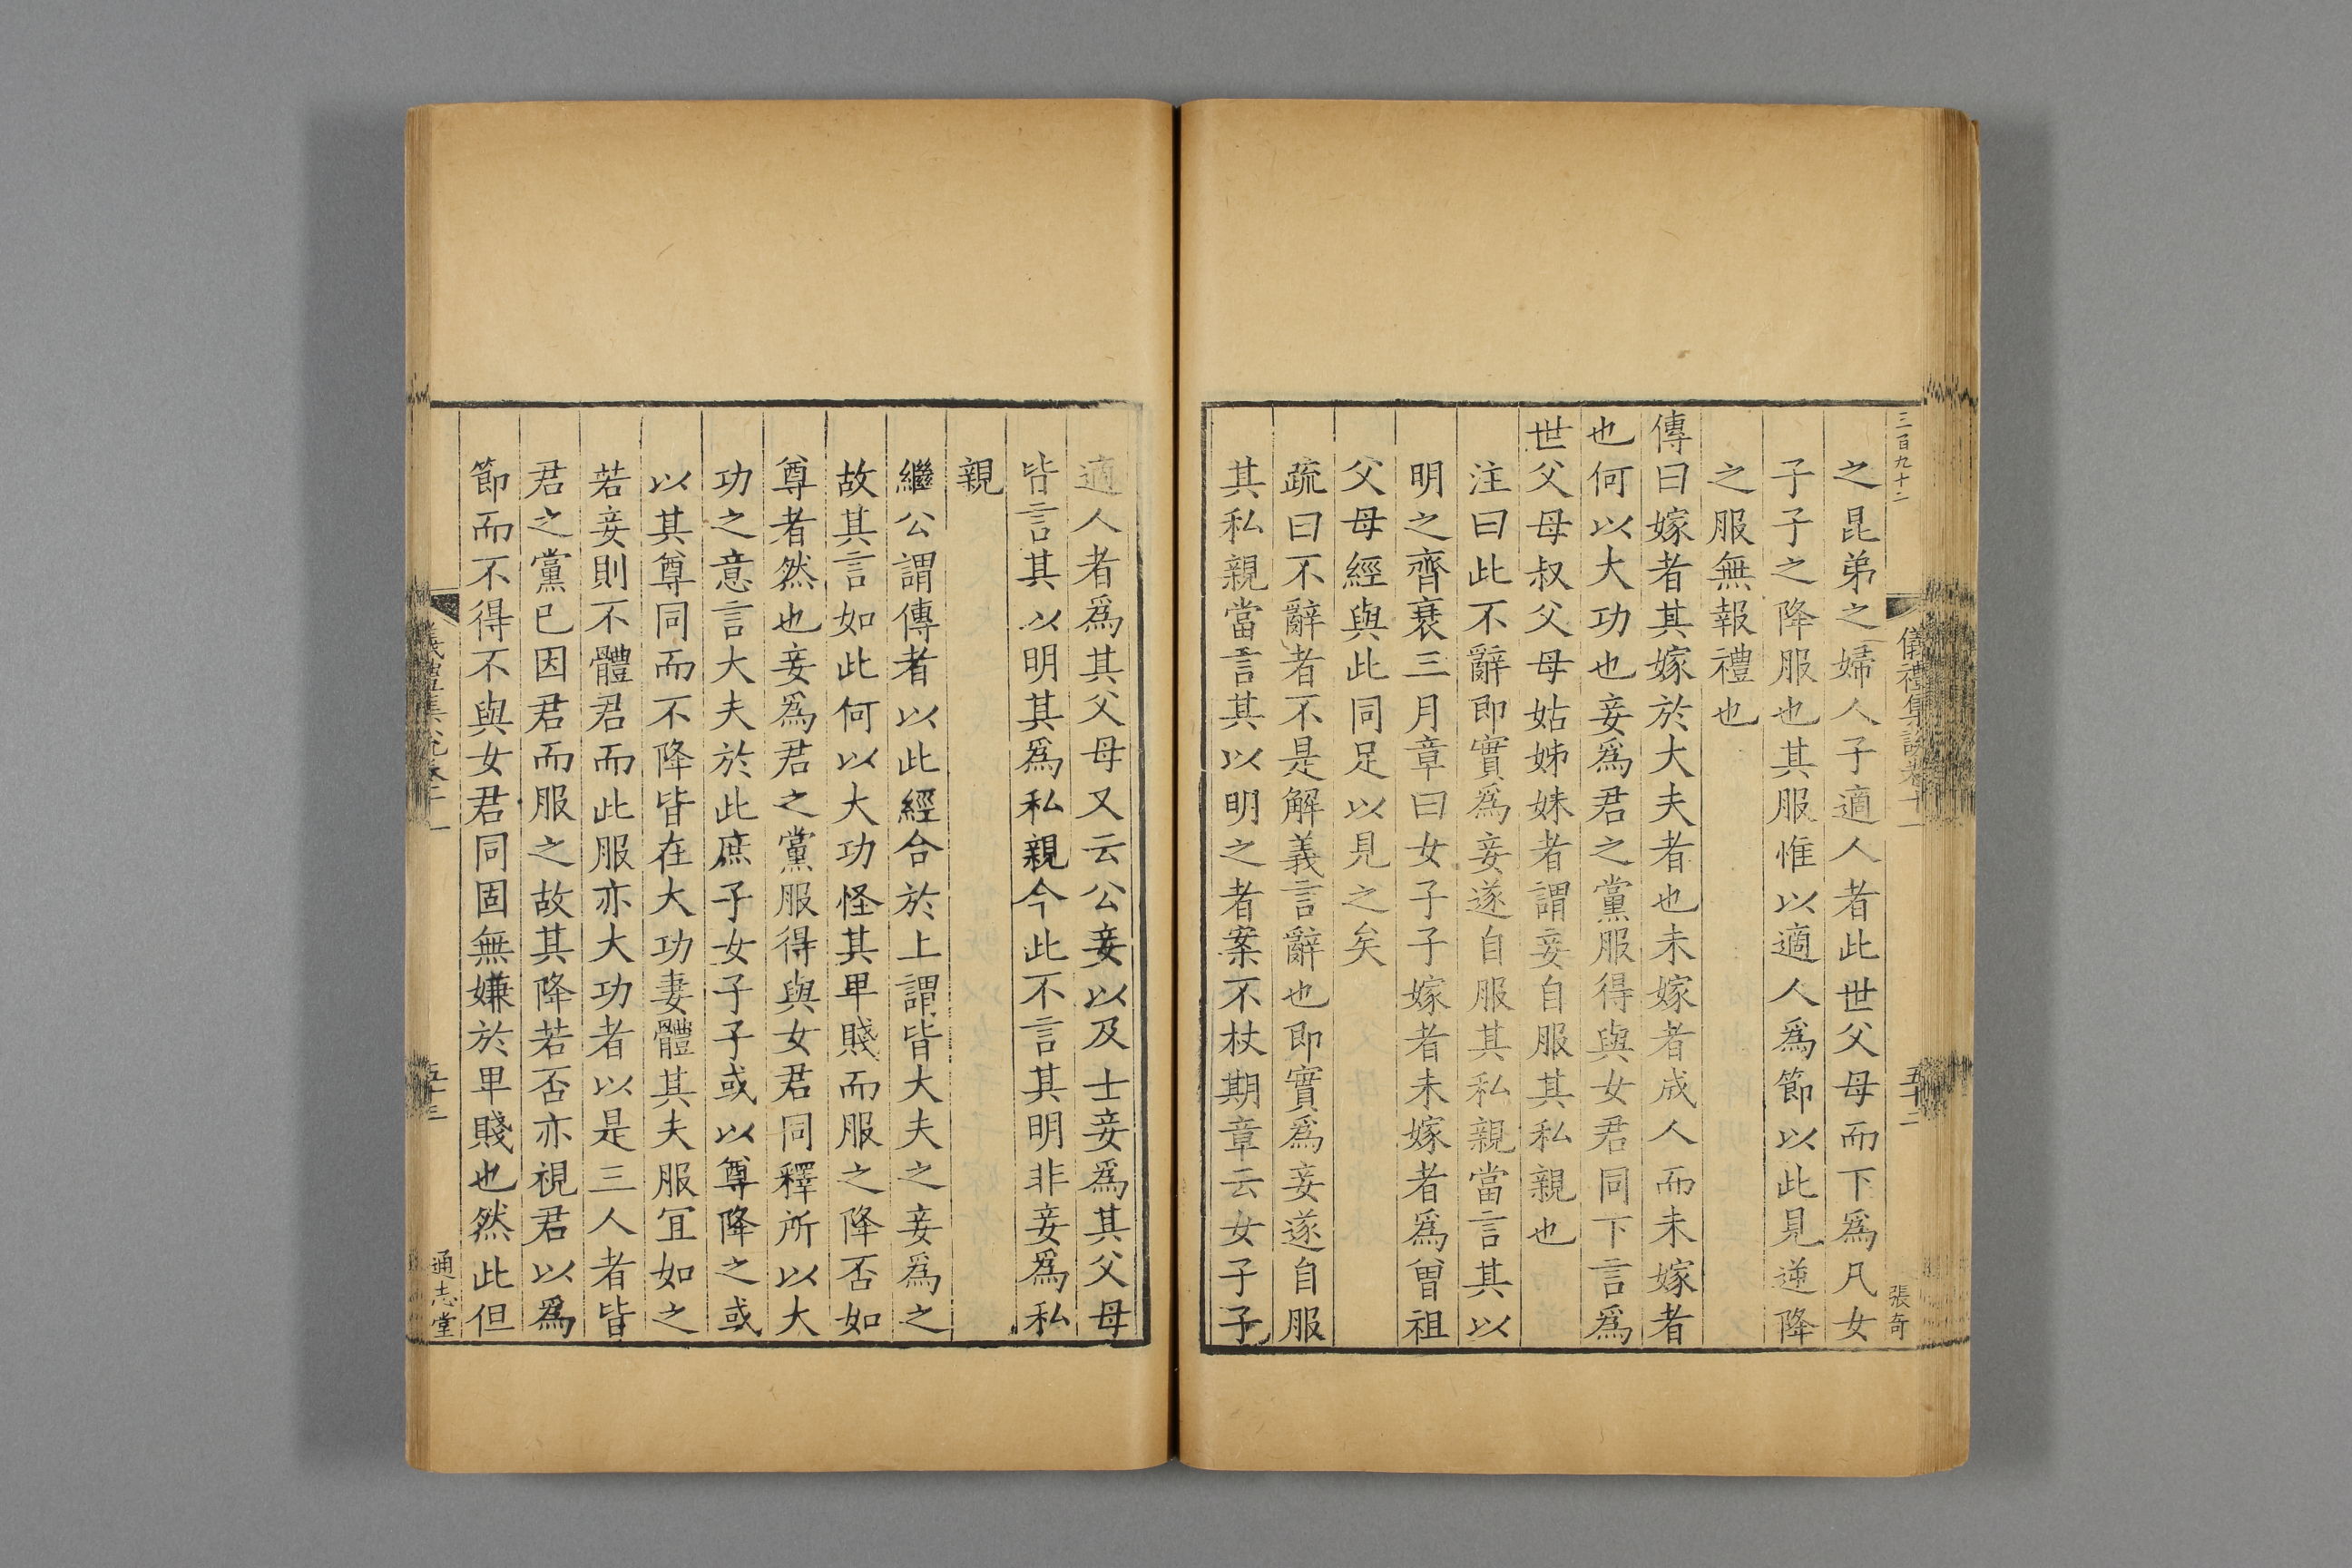 三百九十二
儀禮集說卷十一
五十二
張奇
之昆弟之婦人子適人者此世父母而下爲凡女
子子之降服也其服惟以適人爲節以此見逆降
之服無報禮也
傳曰嫁者其嫁於大夫者也未嫁者成人而未嫁者
也何以大功也妾爲君之黨服得與女君同下言爲
世父母叔父母姑姊妹者謂妾自服其私親也
注曰此不辭即實爲妾遂自服其私親當言其以
明之齊衰三月章曰女子子嫁者未嫁者爲曾祖
父母經與此同足以見之矣
疏曰不辭者不是解義言辭也即實爲妾遂自服
其私親當言其以明之者案不杖期章云女子子
適人者爲其父母又云公妾以及士妾爲其父母
皆言其以明其爲私親今此不言其明非妾爲私
親
繼公謂傳者以此經合於上謂皆大夫之妾爲之
故其言如此何以大功怪其卑賤而服之降否如
尊者然也妾爲君之黨服得與女君同釋所以大
功之意言大夫於此庶子女子子或以尊降之或
以其尊同而不降皆在大功妻體其夫服宜如之
若妾則不體君而此服亦大功者以是三人者皆
君之黨已因君而服之故其降若否亦視君以爲
節而不得不與女君同固無嫌於卑賤也然此但
儀禮集說卷十一
五十二
通志堂